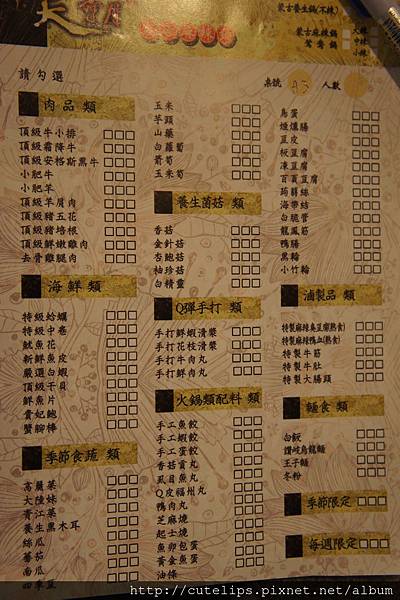 蒙古養生鍋(不辣)
蒙古麻辣鍋
鴛鴦鍋
大辣
中辣
小辣
請勾選
桌號
人數
肉品 類
頂級牛小排
頂級霜降牛
頂級安格斯黑牛
小肥牛
小肥羊
頂級羊肩肉
頂級豬五花
頂級豬培根
頂級鮮嫩雞肉
去骨雞腿肉
海鮮 類
特級蛤蠣
特級中卷
魷魚花
新鮮魚皮
嚴選白蝦
頂級干貝
鮮魚片
貴妃鮑
蟹腳棒
季節食蔬 類
高麗菜
大陸妹
青江菜
養生黑木耳
絲瓜
蕃茄
南瓜
四季豆
玉米
芋頭
山藥
白蘿蔔
箭筍
玉米筍
養生菌菇 類
香菇
金針菇
杏鮑菇
柚珍菇
白精靈
Q彈手打 類
手打鮮蝦滑漿
手打花枝滑漿
手打牛肉丸
手打魚肉丸
火鍋類配料 類
手工魚餃
手工蝦餃
手工蛋餃
香菇貢丸
虱目魚丸
Q皮福州丸
鴨肉丸
芝麻燒
起士燒
魚卵包蛋
黃金魚蛋
油條
鳥蛋
燻爌腸
豆皮
板豆腐
凍豆腐
百頁豆腐
蒟蒻絲
海帶結
白脆管
龍鳳筋
鴨腸
黑輪
小竹輪
滷製品 類
特製麻辣臭豆腐(熟食)
特製麻辣鴨血(熟食)
特製牛筋
特製牛肚
特製大腸頭
麵食 類
白飯
讚岐烏龍麵
王子麵
冬粉
季節限定
每週限定
http://cutelips.pixnet.net/album